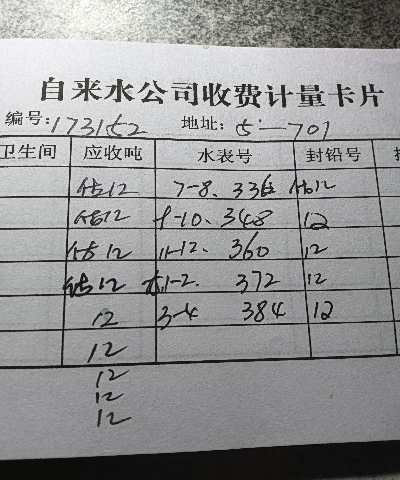 自来水公司收费计量卡片
编号:173152 地址:5-701
卫生间 应收吨 水表号 封铅号
估12 7-8、336 估12
估12 9-10、348 12
估12 11-12、360 12
估12 1-2、372 12
12 3-4 384 12
12
12
12
12